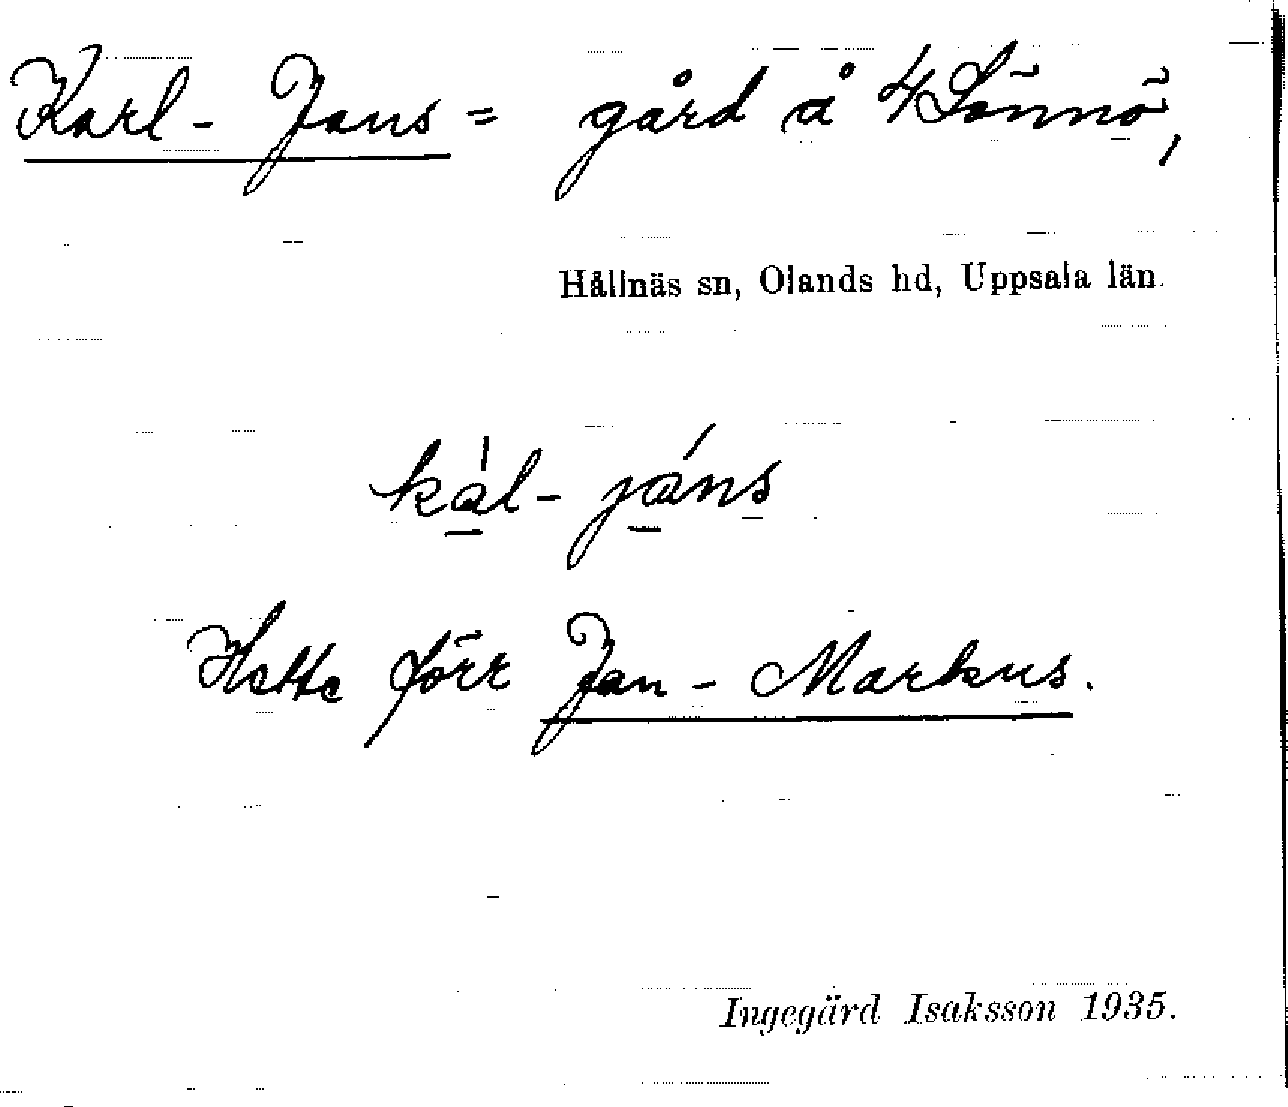 Karl-Jans = gård å 4 Sönnö,
Hållnäs sn, Olands hd, Uppsala län.
kàl-jáns
Hette förr Jan-Markus.
Ingegärd Isaksson 1935.